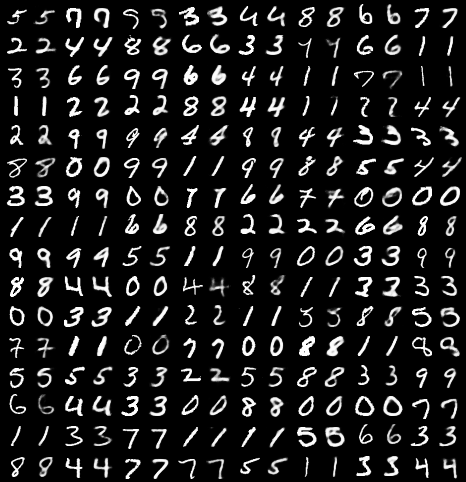 5 5 7 7 9 9 3 3 4 4 8 8 6 6 7 7
2 2 4 4 8 8 6 6 3 3 9 9 6 6 1 1
3 3 6 6 9 9 6 6 4 4 1 1 7 7 1 1
1 1 2 2 2 2 8 8 4 4 1 1 7 7 4 4
2 2 9 9 9 9 4 4 9 9 4 4 3 3 3 3
8 8 0 0 9 9 1 1 9 9 8 8 5 5 4 4
3 3 9 9 0 0 7 7 6 6 7 7 0 0 0 0
1 1 1 1 6 6 8 8 2 2 2 2 6 6 8 8
9 9 9 9 5 5 1 1 9 9 0 0 3 3 9 9
8 8 4 4 0 0 4 4 8 8 1 1 3 3 3 3
0 0 3 3 1 1 2 2 1 1 5 5 8 8 5 5
7 7 1 1 0 0 7 7 0 0 8 8 1 1 9 9
5 5 5 5 3 3 2 2 5 5 8 8 3 3 9 9
6 6 4 4 3 3 0 0 8 8 0 0 0 0 7 7
1 1 3 3 7 7 1 1 1 1 5 5 6 6 3 3
8 8 4 4 7 7 7 7 5 5 1 1 3 3 4 4